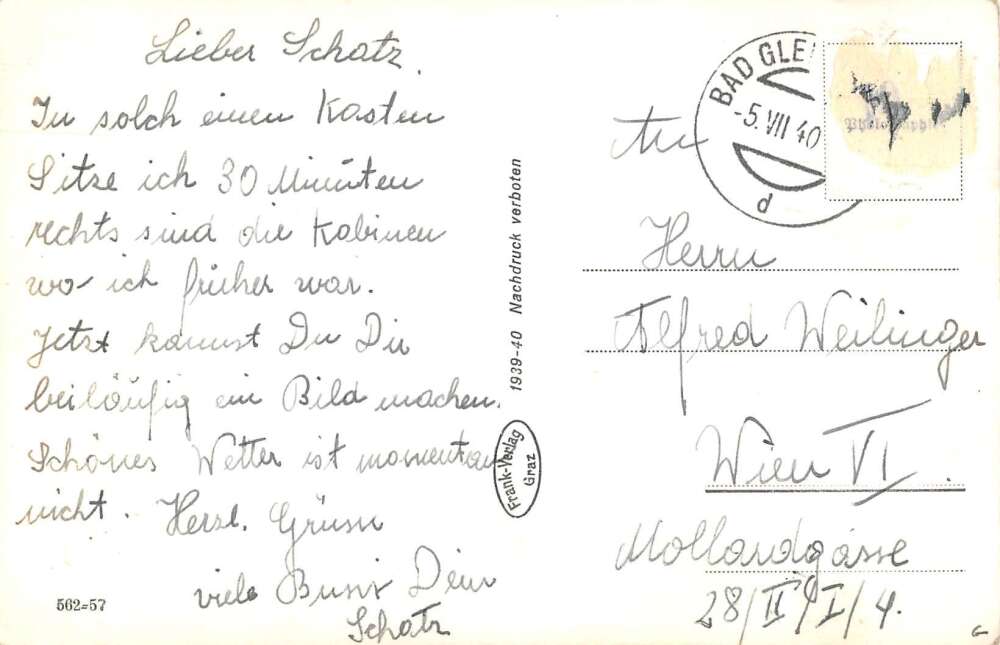 Lieber Schatz.
In solch einen Kasten
Sitze ich 30 Minuten
rechts sind die Kabinen
wo ich früher war.
Jetzt kannst Du Dir
beiläufig ein Bild machen.
Schönes Wetter ist momentan
nicht. Herzl. Grüsse
viele Bussi Dein
Schatz
562=57
1939-40 Nachdruck verboten
Frank-Verlag
Graz
BAD GLEI
-5.VII 40
d
An
Herrn
Alfred Weilinger
Wien VI.
Mollardgasse
28/II/I/4.